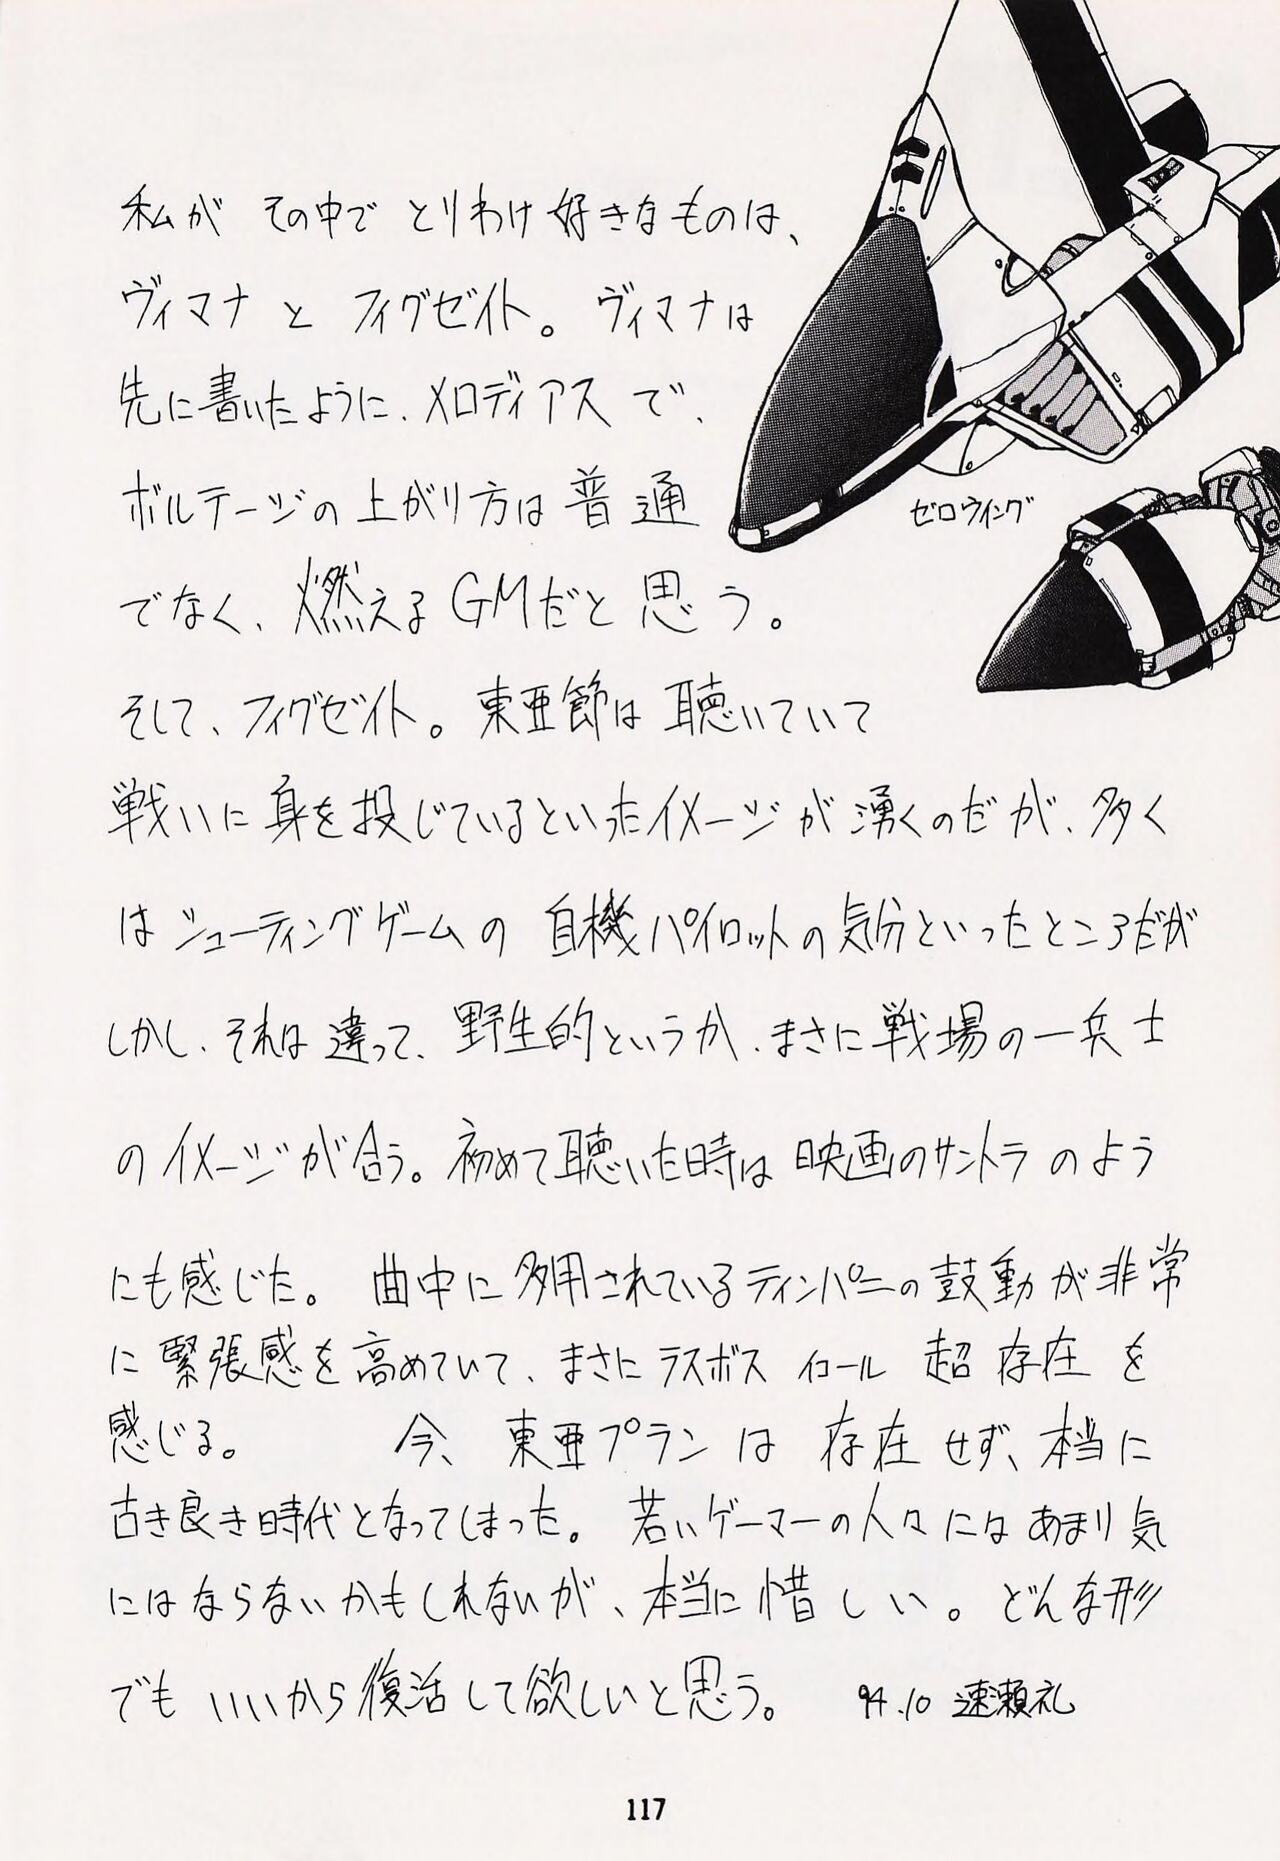 私が その中で とりわけ好きなものは、
ヴィマナ と フィグゼイト。ヴィマナは
先に書いたように、メロディアス で、
ボルテージの上がり方は普通
でなく、燃えるGMだと思う。
ゼロウイング
そして、フィグゼイト。東亜節は聴いていて
戦いに身を投じているといったイメージが湧くのだが、多く
はシューティングゲームの自機パイロットの気分といったところだが
しかし、それは違って、野生的というか、まさに戦場の一兵士
のイメージが合う。初めて聴いた時は映画のサントラのよう
にも感じた。曲中に多用されているティンパニーの鼓動が非常
に緊張感を高めていて、まさにラスボス イコール 超存在を
感じる。 今、東亜プランは存在せず、本当に
古き良き時代となってしまった。若いゲーマーの人々にはあまり気
にはならないかもしれないが、本当に惜しい。どんな形
でもいいから復活して欲しいと思う。 94.10 速瀬礼
117